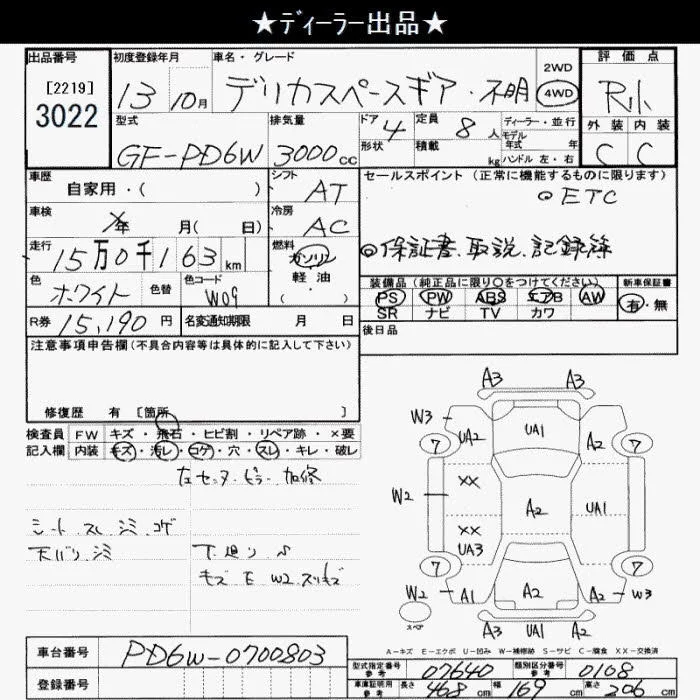 ★ディーラー出品★
出品番号
[2219]
3022
初度登録年月
13 10月
車名・グレード
デリカスペースギア・不明
2WD
4WD
評価点
R小
外装 内装
C C
型式
GF-PD6W
排気量
3000cc
ドア 4
形状
定員 8人
積載 kg
ディーラー・並行
モデル
年式 年
ハンドル 左・右
車歴
自家用・( )
シフト
AT
セールスポイント (正常に機能するものに限ります)
◎ETC
◎保証書.取説.記録簿
車検
年 月( 日)
冷房
AC
走行
15万0千163km
燃料
ガソリン
軽油
( ・ )
色
ホワイト
色替
色コード
W09
装備品 (純正品に限り〇をつけてください)
PS PW ABS エアB AW
SR ナビ TV カワ
新車保証書
有・無
R券 15,190円
名変通知期限 月 日
後日品
注意事項申告欄(不具合内容等は具体的に記入して下さい)
修復歴 有 [箇所 ]
検査員 FW キズ・飛石・ヒビ割・リペア跡・×要
記入欄 内装 キズ・汚レ・コゲ・穴・スレ・キレ・破レ
左センターピラー 加修
シート.スレ.シミ.コゲ
天バリ.シミ
下廻り
キズ E W2.スリキズ
A3 A3
W3 UA2 UA1 A2
7 7
XX
W2 A2 UA1
XX
UA3
7 7
W2 A1 A2 A2 W3
スペア
A3 UA1 A2
A-キズ E-エクボ U-凹み W-補修跡 S-サビ C-腐食 XX-交換済
車台番号 PD6W-0700803
登録番号
型式指定番号 参考 07640
類別区分番号 参考 0108
車庫証明用 参考 長さ 468cm 幅 169cm 高さ 206cm